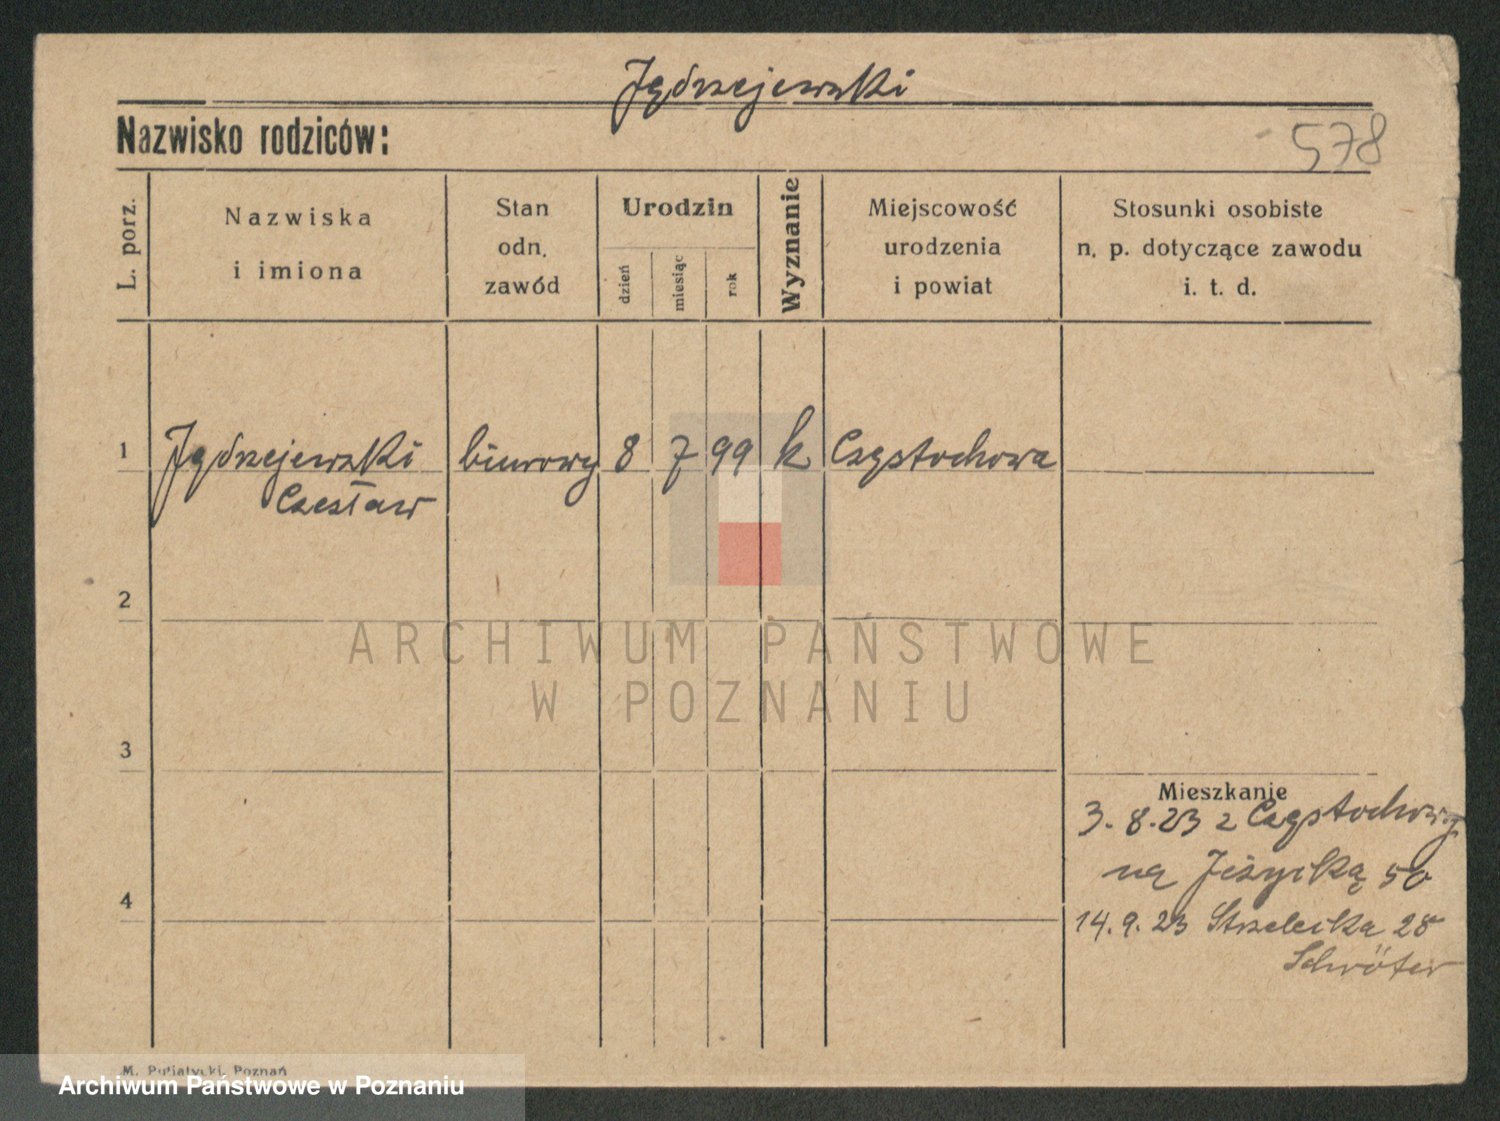 Jędrzejewski
Nazwisko rodziców:
578
L. porz.
Nazwiska
i imiona
Stan
odn.
zawód
Urodzin
dzień
miesiąc
rok
Wyznanie
Miejscowość
urodzenia
i powiat
Stosunki osobiste
n. p. dotyczące zawodu
i. t. d.
1 Jędrzejewski biurowy 8 7 99 k Częstochowa
Czesław
2
ARCHIWUM PAŃSTWOWE
W POZNANIU
3
Mieszkanie
3. 8. 23 z Częstochowy
na Jeżycką 50
4
14. 9. 23 Strzelecka 28
Schröter
M. Putiatycki, Poznań
Archiwum Państwowe w Poznaniu